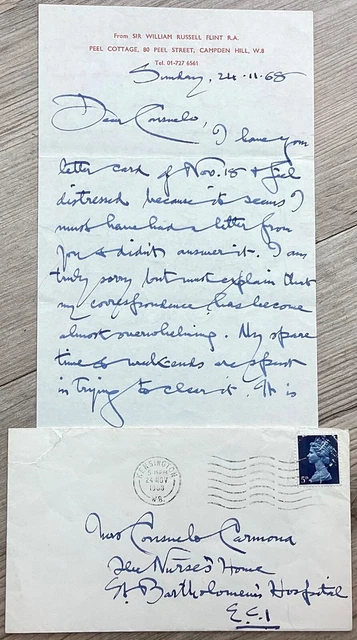 From SIR WILLIAM RUSSELL FLINT R.A.
PEEL COTTAGE, 80 PEEL STREET, CAMPDEN HILL, W.8
Tel. 01-727 6561
Sunday, 24·11·68
Dear Consuelo,
I have your
letter card of Nov. 18 & feel
distressed because it seems I
must have had a letter from
you & didn't answer it. I am
truly sorry but must explain that
my correspondence has become
almost overwhelming. My spare
time & weekends are spent
in trying to clear it. It is
KENSINGTON
24 NOV
1968
W.8.
5D
Miss Consuelo Carmona
The Nurses' Home
St. Bartholomew's Hospital
E.C.1